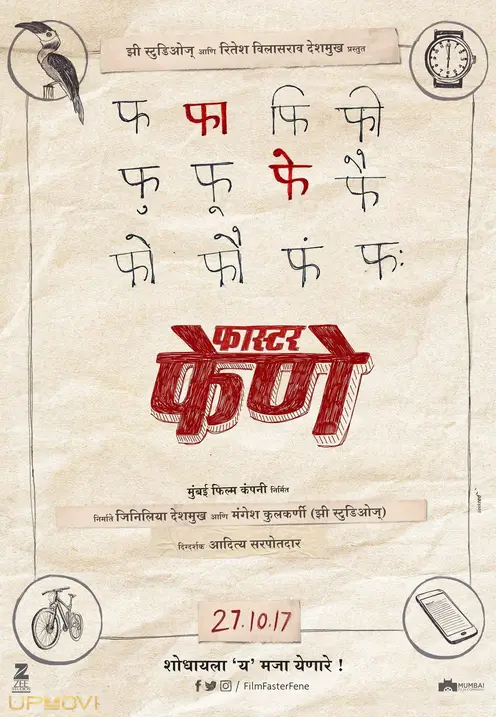 झी स्टुडिओज् आणि रितेश विलासराव देशमुख प्रस्तुत
फ फा फि फी
फु फू फे फै
फो फौ फं फः
फास्टर
फेणे
मुंबई फिल्म कंपनी निर्मित
निर्माते जिनिलिया देशमुख आणि मंगेश कुलकर्णी (झी स्टुडिओज्)
दिग्दर्शक आदित्य सरपोतदार
27.10.17
शोधायला ‘य’ मजा येणारे !
/ FilmFasterFene
ZEE
STUDIOS
MUMBAI
UPMOVI